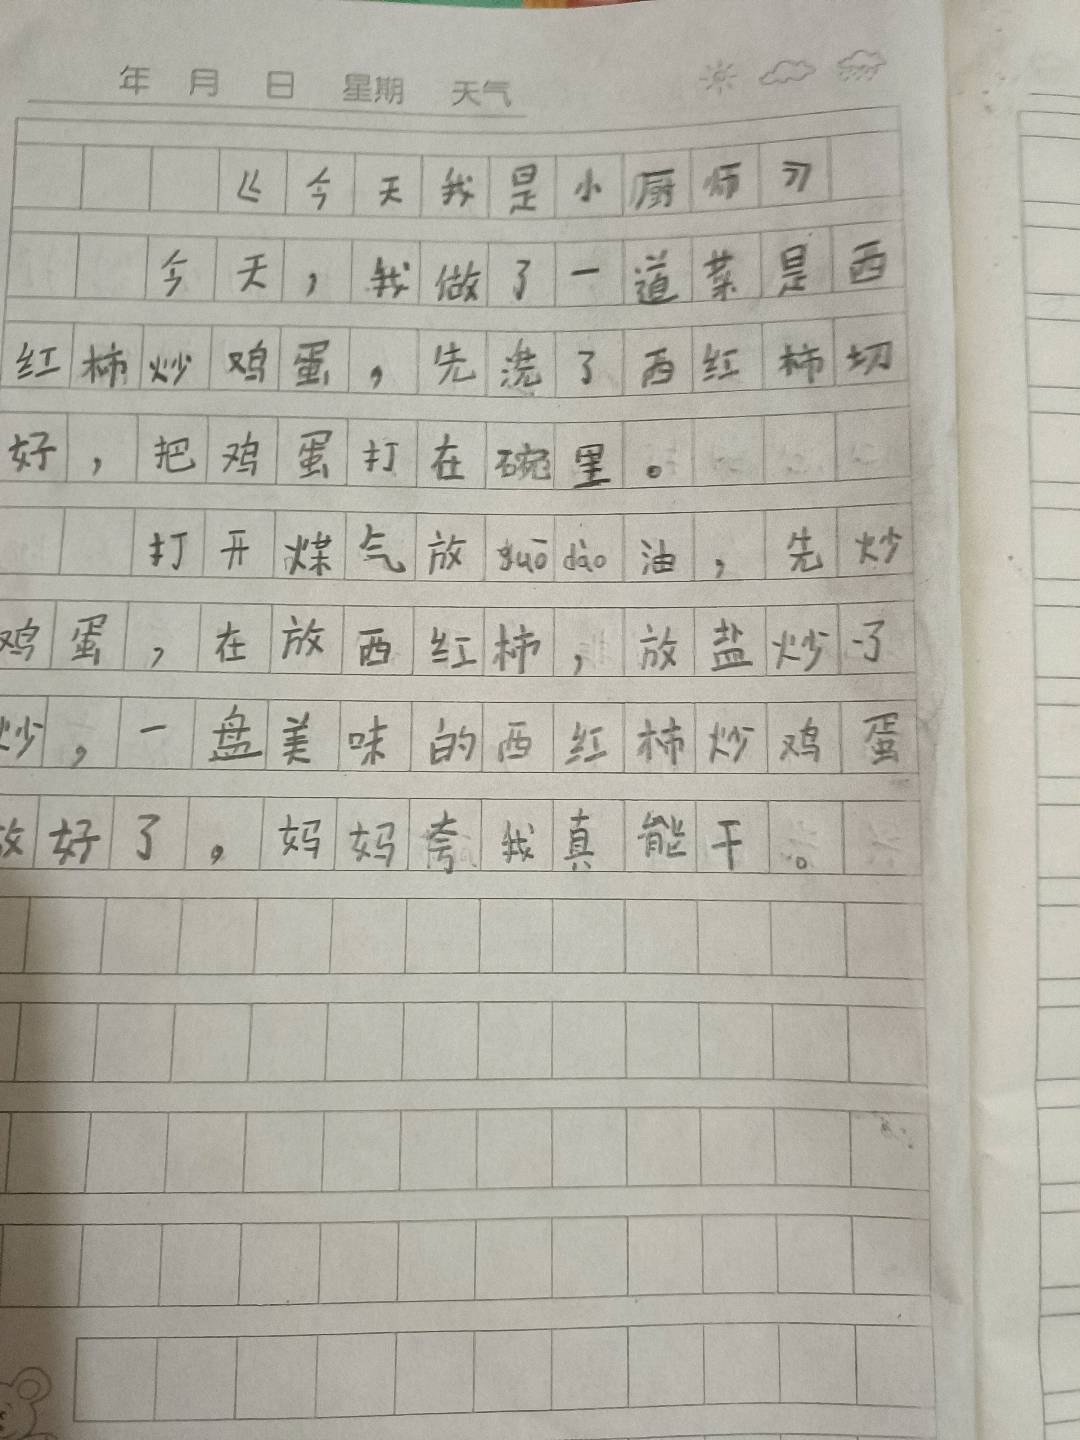 年 月 日 星期 天气
《今天我是小厨师》
今天，我做了一道菜是西
红柿炒鸡蛋，先洗了西红柿切
好，把鸡蛋打在碗里。
打开煤气放guōdào油，先炒
鸡蛋，在放西红柿，放盐炒了
炒，一盘美味的西红柿炒鸡蛋
做好了，妈妈夸我真能干。